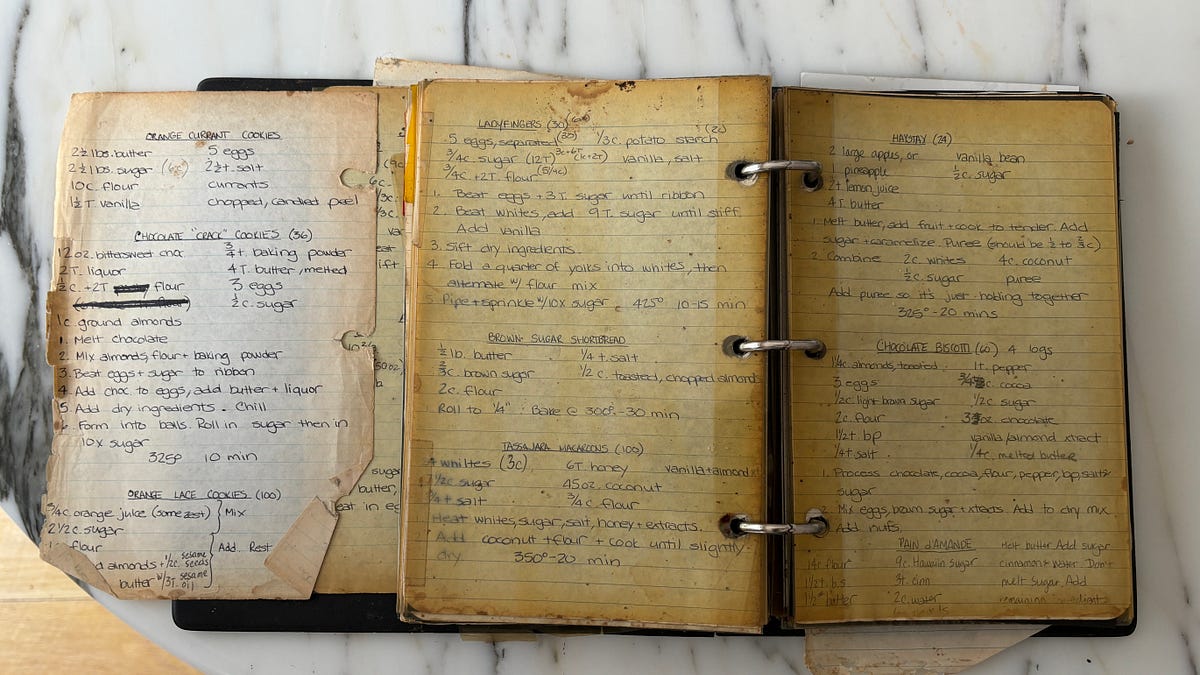 ORANGE CURRANT COOKIES
2½ lbs. butter 5 eggs
2½ lbs. sugar 2½ t. salt
10 c. flour currants
1½ T. vanilla chopped, candied peel
CHOCOLATE "CRACK" COOKIES (36)
12 oz. bittersweet choc ¾ t. baking powder
2 T. liquor 4 T. butter, melted
½ c. + 2T flour 3 eggs
½ c. sugar
1 c. ground almonds
1. Melt chocolate
2. Mix almonds, flour + baking powder
3. Beat eggs + sugar to ribbon
4. Add choc. to eggs, add butter + liquor
5. Add dry ingredients. Chill
6. Form into balls. Roll in sugar then in
10x sugar
325° 10 min
ORANGE LACE COOKIES (100)
¾ c. orange juice (some zest) Mix
2 1/2 c. sugar
flour Add Rest
almonds + 1/2 c. sesame seeds
butter w/ 3T. sesame oil
LADYFINGERS (30)
5 eggs, separated (30) ⅓ c. potato starch
¾ c. sugar (12T) vanilla, salt
¾ c. + 2T. flour
1. Beat eggs + 3T. sugar until ribbon
2. Beat whites, add 9T. sugar until stiff
Add vanilla
3. Sift dry ingredients.
4. Fold a quarter of yolks into whites, then
alternate w/ flour mix
5. Pipe + sprinkle w/ 10x sugar 425° 10-15 min
BROWN SUGAR SHORTBREAD
½ lb. butter ¼ t. salt
⅔ c. brown sugar 1/2 c. toasted, chopped almonds
2 c. flour
Roll to ¼". Bake @ 300° - 30 min
TASSAJARA MACAROONS (100)
4 whiltes (3c) 6T. honey vanilla + almond xt
1 1/2 c. sugar 45 oz. coconut
¾ t salt ¾ c. flour
Heat whites, sugar, salt, honey + extracts.
Add coconut + flour + cook until slightly
dry 350° - 20 min
HAYSTAY (24)
2 large apples, or vanilla bean
pineapple ½ c. sugar
2 t. lemon juice
4 T. butter
1. Melt butter, add fruit + cook to tender. Add
sugar + caramelize. Puree (should be ½ to ⅔ c)
2. Combine 2 c. whites 4 c. coconut
½ c. sugar puree
Add puree so it's just holding together
325° - 20 mins
CHOCOLATE BISCOTTI (60) 4 logs
1 1/4 c. almonds, toasted 1 t. pepper
3 eggs 3/4 c. cocoa
1/2 c. light brown sugar 1/2 c. sugar
2 c. flour 3 oz. chocolate
1 1/2 t. bp vanilla/almond xtract
1/4 t. salt 1/4 c. melted butter
1. Process chocolate, cocoa, flour, pepper, bp, salt +
sugar
Mix eggs, brown sugar + xtracts. Add to dry mix.
Add nuts.
PAIN d'AMANDE Melt butter. Add sugar
14 c flour 9 c. Hawaiin sugar cinnamon + water. Don't
1 1/2 t. b.s 9 t. cinn melt sugar. Add
butter 2 c. water remaining